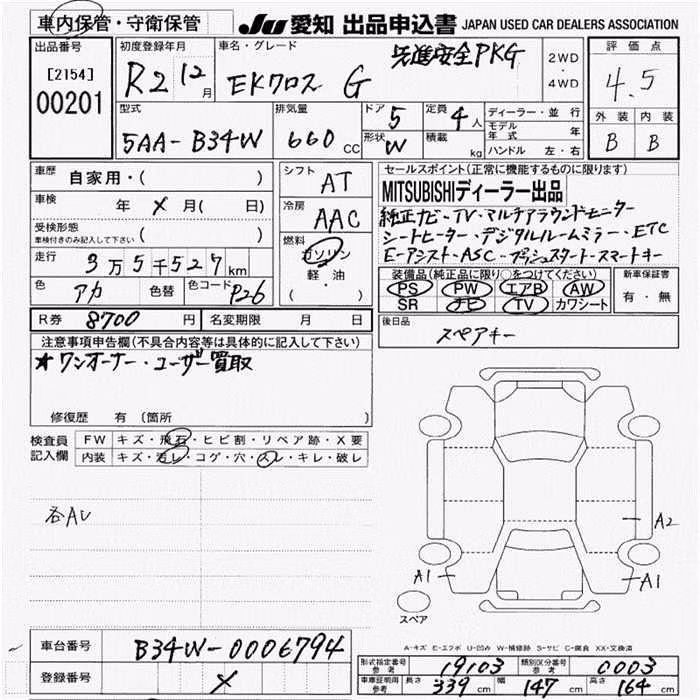 車内保管・守衛保管
JU 愛知 出品申込書 JAPAN USED CAR DEALERS ASSOCIATION
出品番号
[2154]
00201
初度登録年月
R2 12月
車名・グレード
先進安全PKG
EKクロス G
2WD
・
4WD
評価点
4.5
外装 内装
B B
型式
5AA-B34W
排気量
660 CC
ドア 5
形状 W
定員 4人
積載 kg
ディーラー・並行
モデル年式 年
ハンドル 左・右
車歴 自家用・( )
車検 年 × 月( 日)
受検形態
車検付きのみ記入して下さい ( )
走行 3万5千527km
色 アカ 色替 色コード P26
シフト AT
冷房 AAC
燃料
ガソリン
軽油
( ・ )
セールスポイント(正常に機能するものに限ります)
MITSUBISHIディーラー出品
純正ナビ・TV・マルチアラウンドモニター
シートヒーター・デジタルルームミラー・ETC
E-アシスト・ASC・プッシュスタート・スマートキー
装備品(純正品に限り○をつけてください)
PS PW エアB AW
SR ナビ TV カワシート
新車保証書
有・無
R券 8700 円 名変期限 月 日
後日品
スペアキー
注意事項申告欄(不具合内容等は具体的に記入して下さい)
★ワンオーナー・ユーザー買取
修復歴 有 (箇所 )
検査員記入欄
FW キズ・飛石・ヒビ割・リペア跡・X要
内装 キズ・汚レ・コゲ・穴・スレ・キレ・破レ
各AU
A2
A1
A1
スペア
A-キズ E-エクボ U-凹み W-補修跡 S-サビ C-腐食 XX-交換済
車台番号 B34W-0006794
登録番号 ×
形式指定番号 参考 19103 類別区分番号 参考 0003
車庫証明用 参考 長さ 339 cm 幅 147 cm 高さ 164 cm